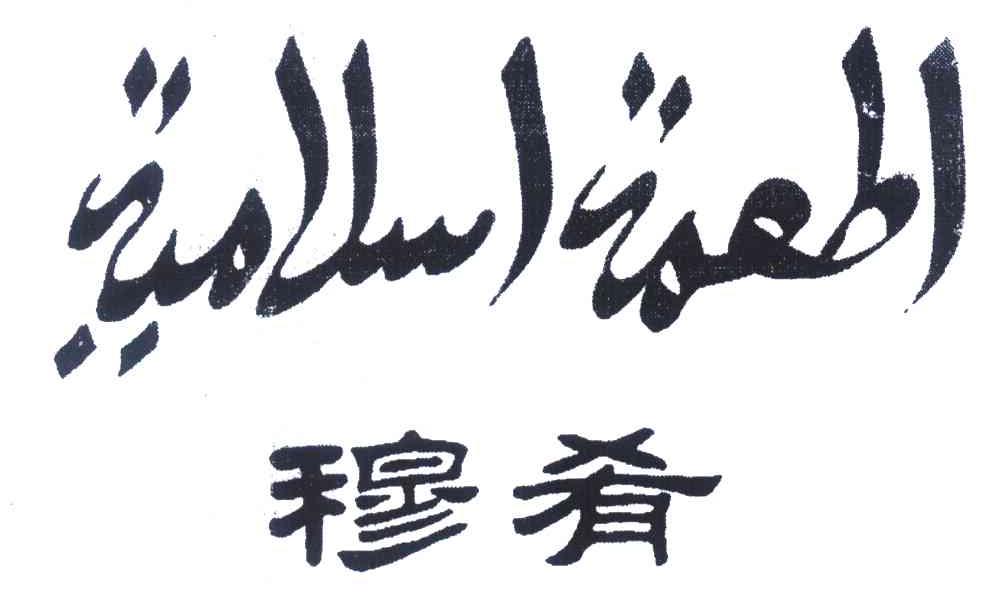 اطعمة اسلامية
穆肴